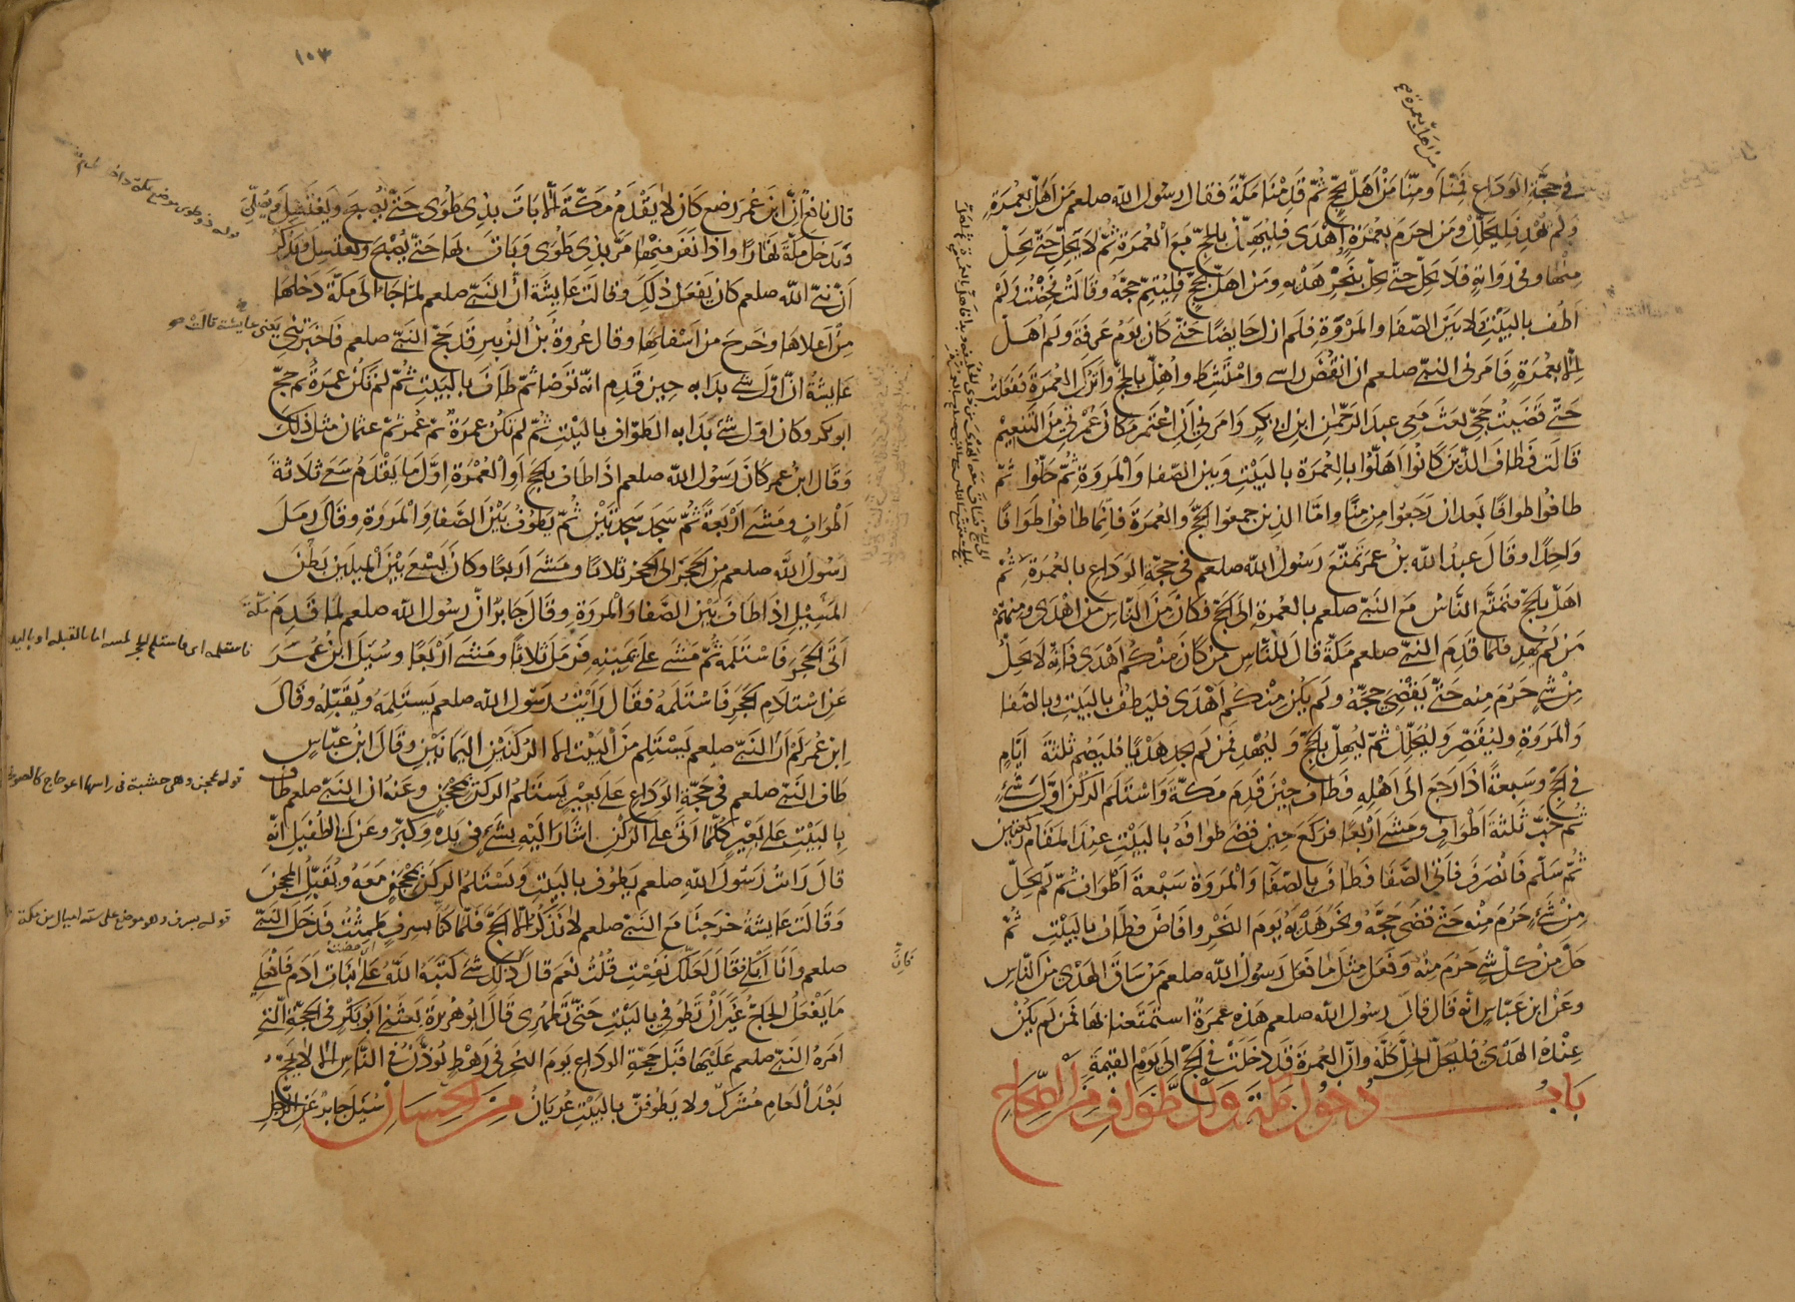 في حجة الوداع فمنا ومنا من اهل بحج ثم قدمنا مكة فقال رسول الله صلعم من اهل بعمرة
من اهل بعمرة
ولم يهد فليحلل ومن احرم بعمرة واهدى فليهل بالحج مع العمرة ثم لا يحل حتى يحل
منها وفي رواية فلا يحل حتى يحل بنحر هديه ومن اهل بحج فليتم حجه وقالت فحضت ولم
اطف بالبيت ولا بين الصفا والمروة فلم ازل حايضا حتى كان يوم عرفة ولم اهل
الا بعمرة فامرني النبي صلعم ان انقض راسي وامتشط واهل بالحج واترك العمرة ففعلت
حتى قضيت حجي بعث معي عبد الرحمن ابن ابي بكر وامرني ان اعتمر مكان عمرتي من التنعيم
قالت فطاف الذين كانوا اهلوا بالعمرة بالبيت وبين الصفا والمروة ثم حلوا ثم
طافوا طوافا بعد ان رجعوا من منا واما الذين جمعوا الحج والعمرة فانما طافوا طوافا
واحدا وقال عبد الله بن عمر تمتع رسول الله صلعم في حجة الوداع بالعمرة ثم
اهل بالحج فتمتع الناس مع النبي صلعم بالعمرة الى الحج فكان من الناس من اهدى ومنهم
من لم يهد فلما قدم النبي صلعم مكة قال للناس من كان منكم اهدى فانه لا يحل
من شي حرم منه حتى يقضي حجه ولم يكن منكم اهدى فليطف بالبيت وبالصفا
والمروة وليقصر وليحلل ثم ليهل بالحج وليهد فمن لم يجد هديا فليصم ثلثة ايام
في الحج وسبعة اذا رجع الى اهله فطاف حين قدم مكة واستلم الركن اول شي
ثم خب ثلثة اطواف ومشى اربعا فركع حين قضى طوافه بالبيت عند المقام ركعتين
ثم سلم فانصرف فاتى الصفا فطاف بالصفا والمروة سبعة اطواف ثم لم يحل
من شي حرم منه حتى قضى حجه ونحر هديه يوم النحر وافاض فطاف بالبيت ثم
حل من كل شي حرم منه وفعل مثل ما فعل رسول الله صلعم من ساق الهدي من الناس
وعن ابن عباس انه قال قال رسول الله صلعم هذه عمرة استمتعنا بها فمن لم يكن
عنده الهدي فليحل الحل كله وان العمرة قد دخلت في الحج الى يوم القيمة
باب دخول مكة والطواف من الصحاح
١٠٣
قال نافع ان ابن عمر رضع كان لا يقدم مكة الا بات بذي طوى حتى يصبح ويغتسل ويصلي
ويدخل مكة نهارا واذا نفر منها مر بذي طوى وبات بها حتى يصبح ويغتسل ويذكر
ان نبي الله صلعم كان يفعل ذلك وقالت عايشة ان النبي صلعم لما جاء الى مكة دخلها
من اعلاها وخرج من اسفلها وقال عروة بن الزبير قد حج النبي صلعم فاخبرتني
يعني عايشة قالت
عايشة ان اول شي بدا به حين قدم انه توضا ثم طاف بالبيت ثم لم تكن عمرة ثم حج
ابو بكر وكان اول شي بدا به الطواف بالبيت ثم لم تكن عمرة ثم عمر ثم عثمان مثل ذلك
وقال ابن عمر كان رسول الله صلعم اذا طاف بالحج او العمرة اول ما يقدم سعى ثلاثة
اطواف ومشى اربعة ثم سجد سجدتين ثم يطوف بين الصفا والمروة وقال رمل
رسول الله صلعم من الحجر الى الحجر ثلاثا ومشى اربعا وكان يسعى بين الميلين بطن
المسيل اذا طاف بين الصفا والمروة وقال جابر ان رسول الله صلعم لما قدم مكة
اتى الحجر فاستلمه ثم مشى على يمينه فرمل ثلاثا ومشى اربعا وسيل ابن عمر
عن استلام الحجر فاستلمه فقال رايت رسول الله صلعم يستلمه ويقبله وقال
ابن عمر لم ار النبي صلعم يستلم من البيت الا الركنين اليمانيين وقال ابن عباس
طاف النبي صلعم في حجة الوداع على بعير يستلم الركن بمحجن وعنه ان النبي صلعم طاف
قوله بمحجن وهي خشبة في راسها اعوجاج كالصولجان
بالبيت على بعير كلما اتى على الركن اشار اليه بشي في يده وكبر وعن ابي الطفيل انه
قال رايت رسول الله صلعم يطوف بالبيت ويستلم الركن بمحجن معه ويقبل المحجن
وقالت عايشة خرجنا مع النبي صلعم لا نذكر الا الحج فلما كنا بسرف طمثت فدخل النبي
قوله بسرف وهو موضع على ستة اميال من مكة
صلعم وانا ابكي فقال لعلك نفست قلت نعم قال فان ذلك شي كتبه الله على بنات ادم فافعلي
ما يفعل الحاج غير ان لا تطوفي بالبيت حتى تطهري قال ابو هريرة بعثني ابو بكر في الحجة التي
امره النبي صلعم عليها قبل حجة الوداع يوم النحر في رهط يوذن في الناس الا لا يحج
بعد العام مشرك ولا يطوفن بالبيت عريان من الحسان سيل جابر عن الرجل